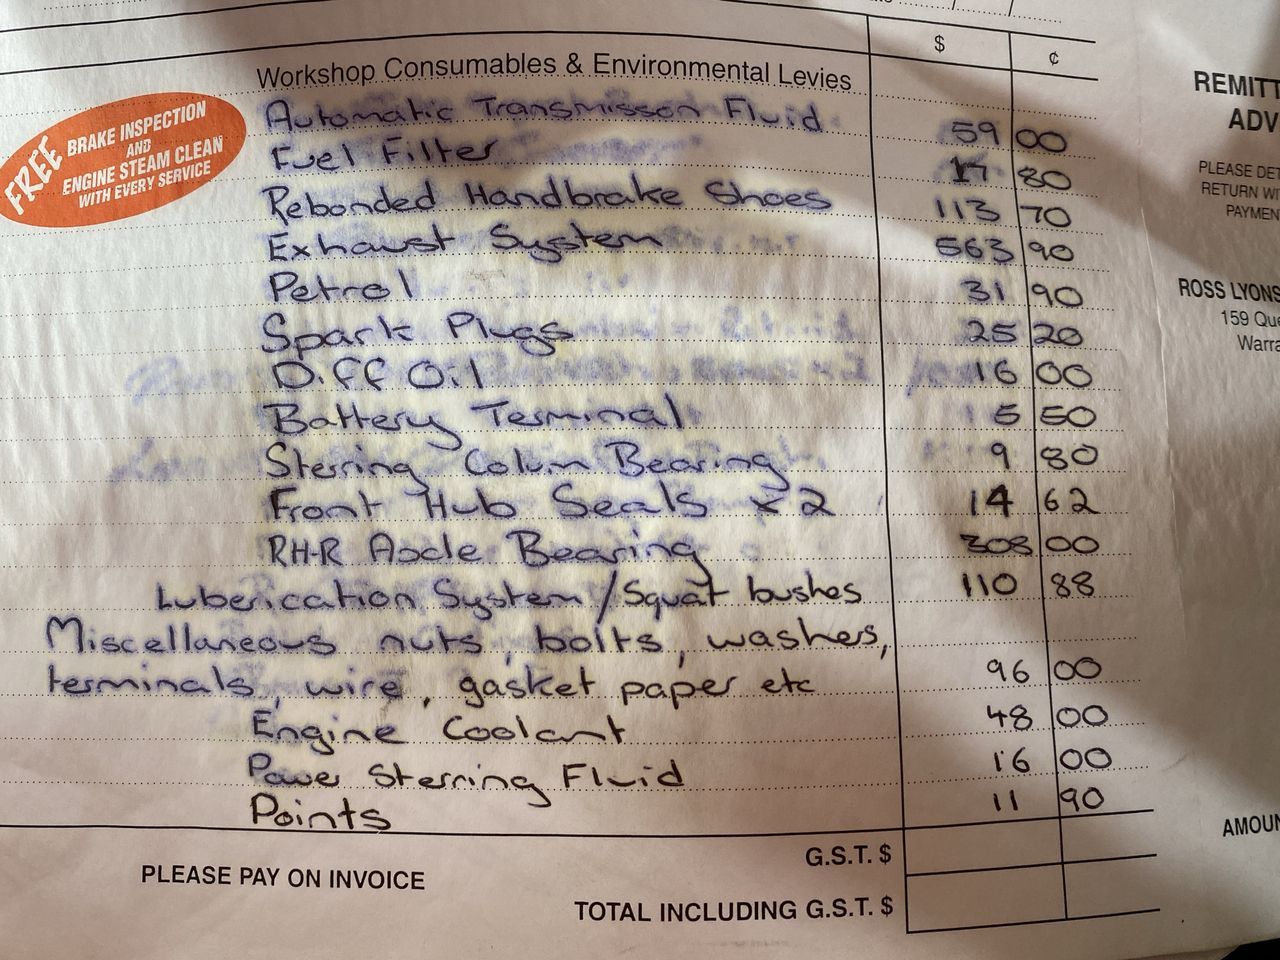 $ ¢
Workshop Consumables & Environmental Levies
REMITT
ADV
FREE
BRAKE INSPECTION
AND
ENGINE STEAM CLEAN
WITH EVERY SERVICE
Automatic Transmisson Fluid 59 00
Fuel Filter 17 80
PLEASE DET
RETURN WI
PAYMEN
Rebonded Handbrake Shoes 113 70
Exhaust System 563 90
Petrol 31 90
ROSS LYONS
159 Que
Warra
Spark Plugs 25 20
Diff Oil 16 00
Battery Terminal 5 50
Sterring Colum Bearing 9 80
Front Hub Seals x 2 14 62
RH-R Axle Bearing 308 00
Luberication System / Squat bushes 110 88
Miscellaneous nuts, bolts, washes,
terminals, wire, gasket paper etc 96 00
Engine Coolant 48 00
Power Sterring Fluid 16 00
Points 11 90
AMOUN
G.S.T. $
PLEASE PAY ON INVOICE
TOTAL INCLUDING G.S.T. $